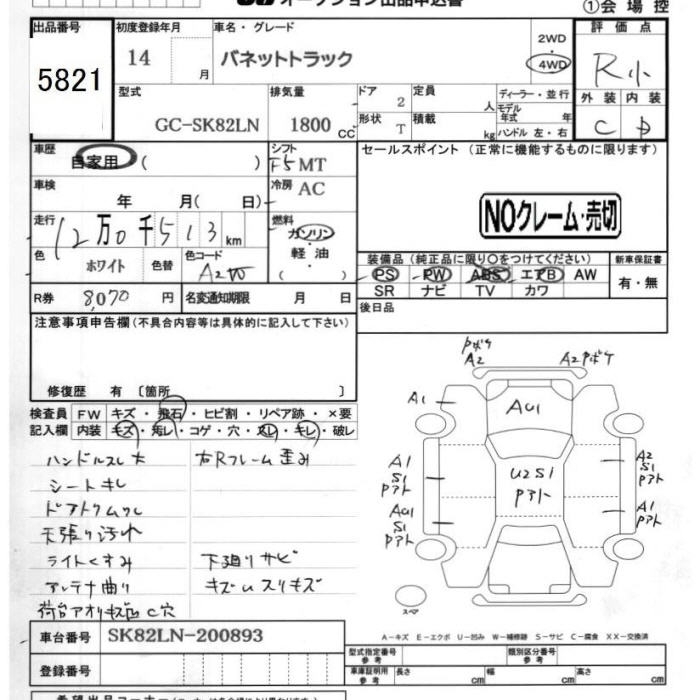 オークション出品申込書
①会場控
出品番号 初度登録年月 車名・グレード 評価点
5821 14 月 バネットトラック 2WD 4WD R小
型式 排気量 ドア 2 定員 人 ディーラー・並行 外装 内装
GC-SK82LN 1800 CC 形状 T 積載 kg モデル年式 年 ハンドル 左・右 C D
車歴 自家用 ( ) シフト F5 MT セールスポイント (正常に機能するものに限ります)
車検 年 月( 日) 冷房 AC
NOクレーム・売切
走行 12万0千513km 燃料 ガソリン 軽油 ( )
色 ホワイト 色替 色コード
装備品 (純正品に限り○をつけてください) 新車保証書
PS PW ABS エアB AW 有・無
SR ナビ TV カワ
R券 8,070 円 名変通知期限 月 日 後日品
注意事項申告欄 (不具合内容等は具体的に記入して下さい)
修復歴 有 〔箇所 〕
検査員 FW キズ・飛石・ヒビ割・リペア跡・×要
記入欄 内装 キズ・汚レ・コゲ・穴・スレ・キレ・破レ
ハンドルスレ大 右Rフレーム歪み
シートキレ
ドアトリムクレ
天張り汚れ
ライトくすみ 下廻りサビ
アンテナ曲り キズムスリキズ
荷台アオリキズ凹C穴
Pボケ
A2
A2Pボケ
A1
AU1
A1
S1
Pアト
U2S1
Pアト
A2
S1
Pアト
AU1
S1
Pアト
A1
Pアト
スペア
A-キズ E-エクボ U-凹み W-補修跡 S-サビ C-腐食 XX-交換済
車台番号 SK82LN-200893
型式指定番号 参考 類別区分番号 参考
登録番号 車庫証明用 参考 長さ cm 幅 cm 高さ cm